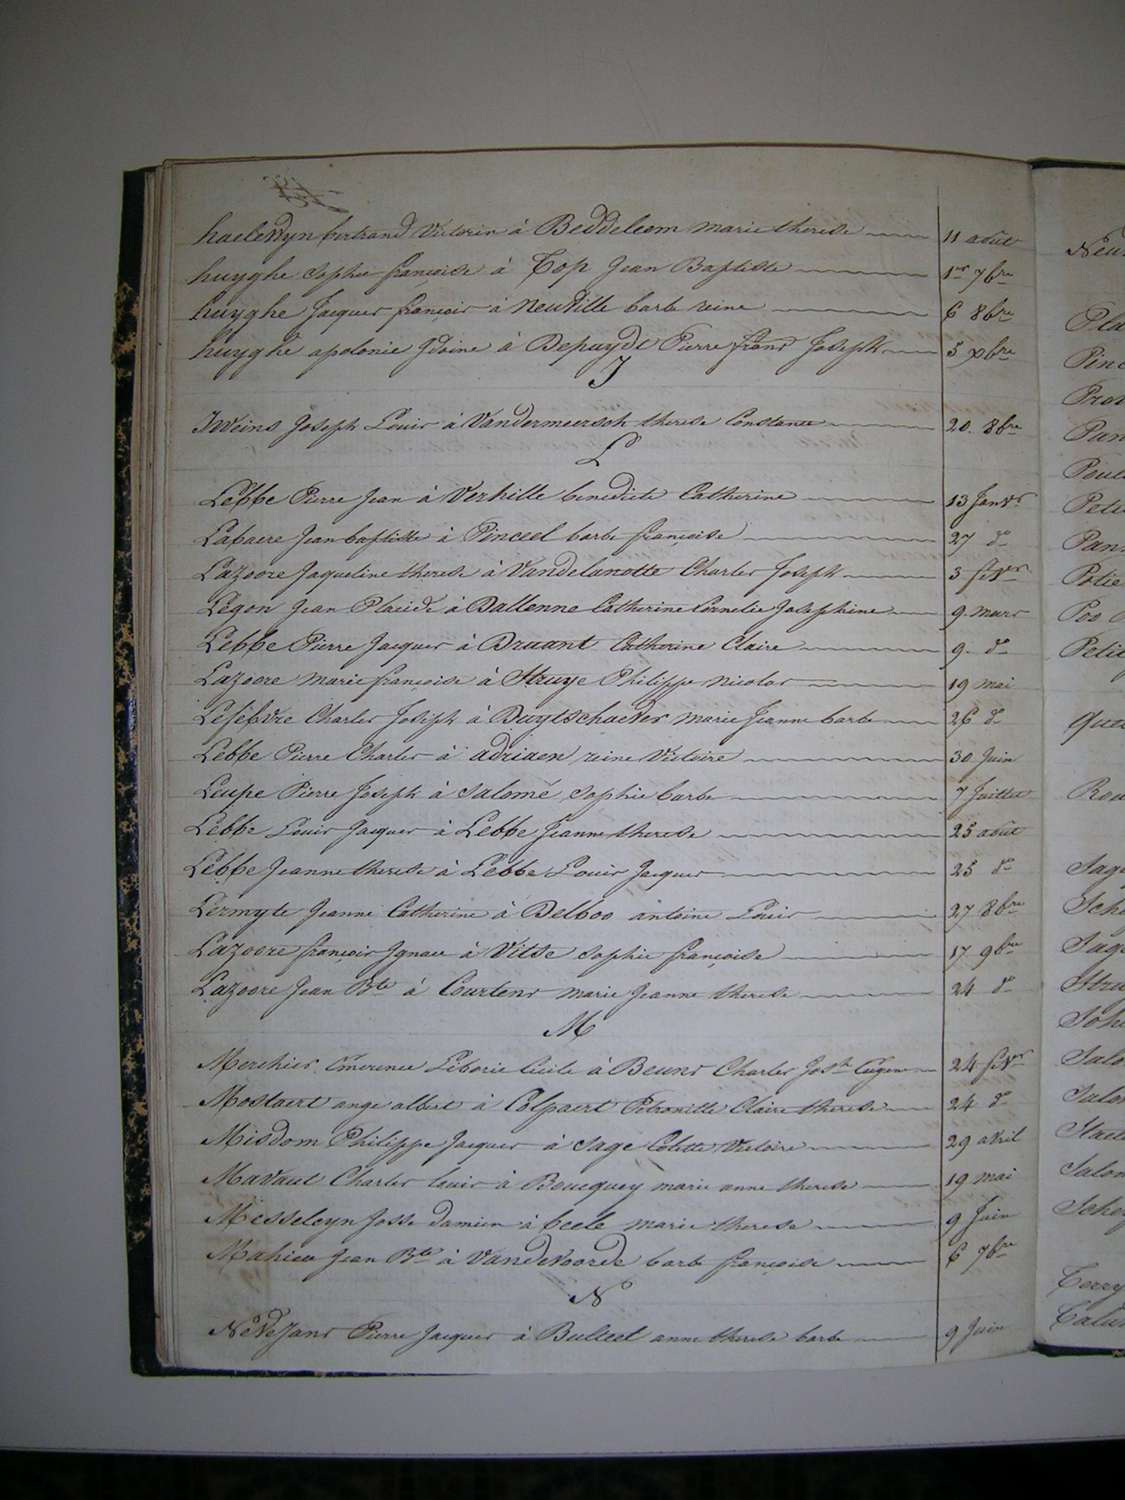 haelewyn bertrand Victorin à Beddeleem marie therese 11 août
huyghe Sophie françoise à Top Jean Baptiste 1er 7bre
huyghe Jacques françois à Neuville barbe reine 6 8bre
huyghe apolonie Idoine à Depuydt Pierre frans Joseph 5 xbre
I
Iweins Joseph Louis à Vandermeersch therese Constance 20. 8bre
L
Lebbe Pierre Jean à Verhille benedicte Catherine 13 Janvr
Labaere Jean baptiste à Pinceel barbe françoise 27 do
Lazoore Jaqueline therese à Vandelanotte Charles Joseph 3 fevr
Legon Jean Placide à Dallenne Catherine Cornelie Josephine 9. mars
Lebbe Pierre Jacques à Druant Catherine Claire 9. do
Lazoore marie françoise à Struye Philippe nicolas 19 mai
Lefebvre Charles Joseph à Duytschaever marie Jeanne barbe 26 do
Lebbe Pierre Charles à adriaen reine Victoire 30 Juin
Leupe Pierre Joseph à Salomé Sophie barbe 7 Juillet
Lebbe Louis Jacques à Lebbe Jeanne therese 25 août
Lebbe Jeanne therese à Lebbe Louis Jacques 25 do
Lermyte Jeanne Catherine à Delboo antoine Louis 27 8bre
Lazoore françois Ignace à Vitse Sophie françoise 17 9bre
Lazoore Jean Bte à Courtens marie Jeanne therese 24 do
M
Merchier Emerence Liborie Cécile à Beuns Charles Josh Eugene 24 fevr
Mostaert ange albert à Colpaert Petronille Claire therese 24 do
Misdom Philippe Jacques à Sage Colette Victoire 29 avril
Mavaut Charles louis à Boucquey marie anne therese 19 mai
Messeleyn Josse damien à feele marie therese 9 Juin
Mahieu Jean Bte à Vandevoorde barbe françoise 6 7bre
N
Nevejans Pierre Jacques à Bulteel anne therese barbe 9 Juin